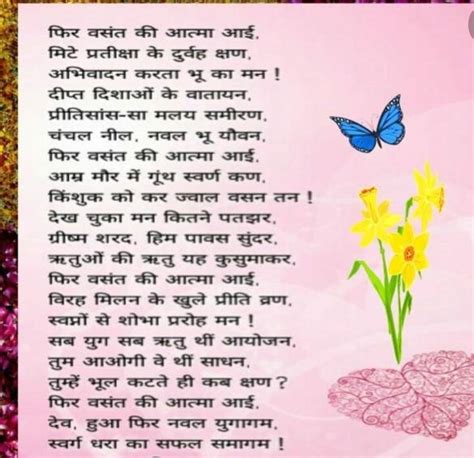 फिर वसंत की आत्मा आई,
मिटे प्रतीक्षा के दुर्वह क्षण,
अभिवादन करता भू का मन !
दीप्त दिशाओं के वातायन,
प्रीतिसांस-सा मलय समीरण,
चंचल नील, नवल भू यौवन,
फिर वसंत की आत्मा आई,
आम्र मौर में गूंथ स्वर्ण कण,
किंशुक को कर ज्वाल वसन तन !
देख चुका मन कितने पतझर,
ग्रीष्म शरद, हिम पावस सुंदर,
ऋतुओं की ऋतु यह कुसुमाकर,
फिर वसंत की आत्मा आई,
विरह मिलन के खुले प्रीति व्रण,
स्वप्नों से शोभा प्ररोह मन !
सब युग सब ऋतु थीं आयोजन,
तुम आओगी वे थीं साधन,
तुम्हें भूल कटते ही कब क्षण ?
फिर वसंत की आत्मा आई,
देव, हुआ फिर नवल युगागम,
स्वर्ग धरा का सफल समागम !